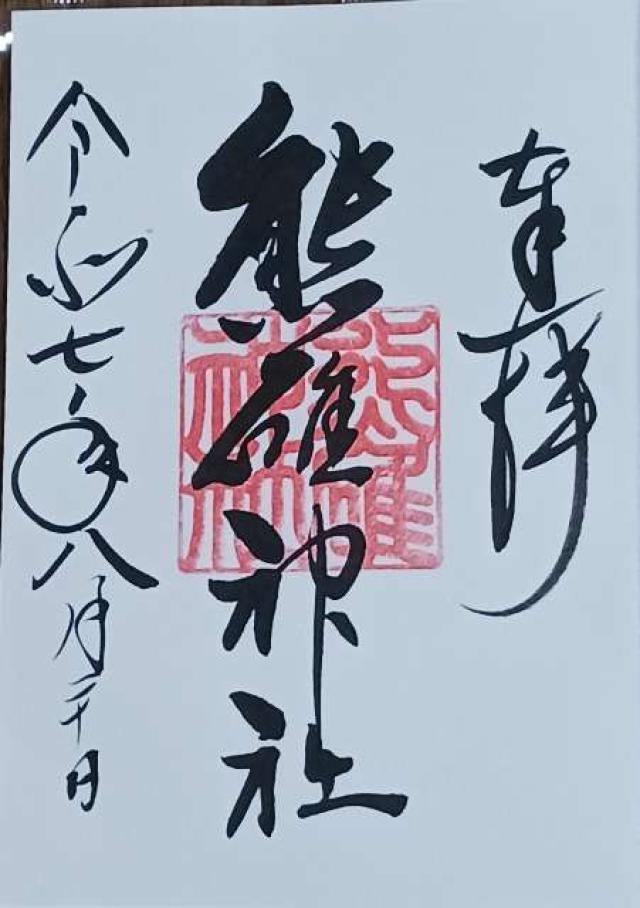 奉拝
熊碓神社
令和七年八月二十日
熊碓
神社